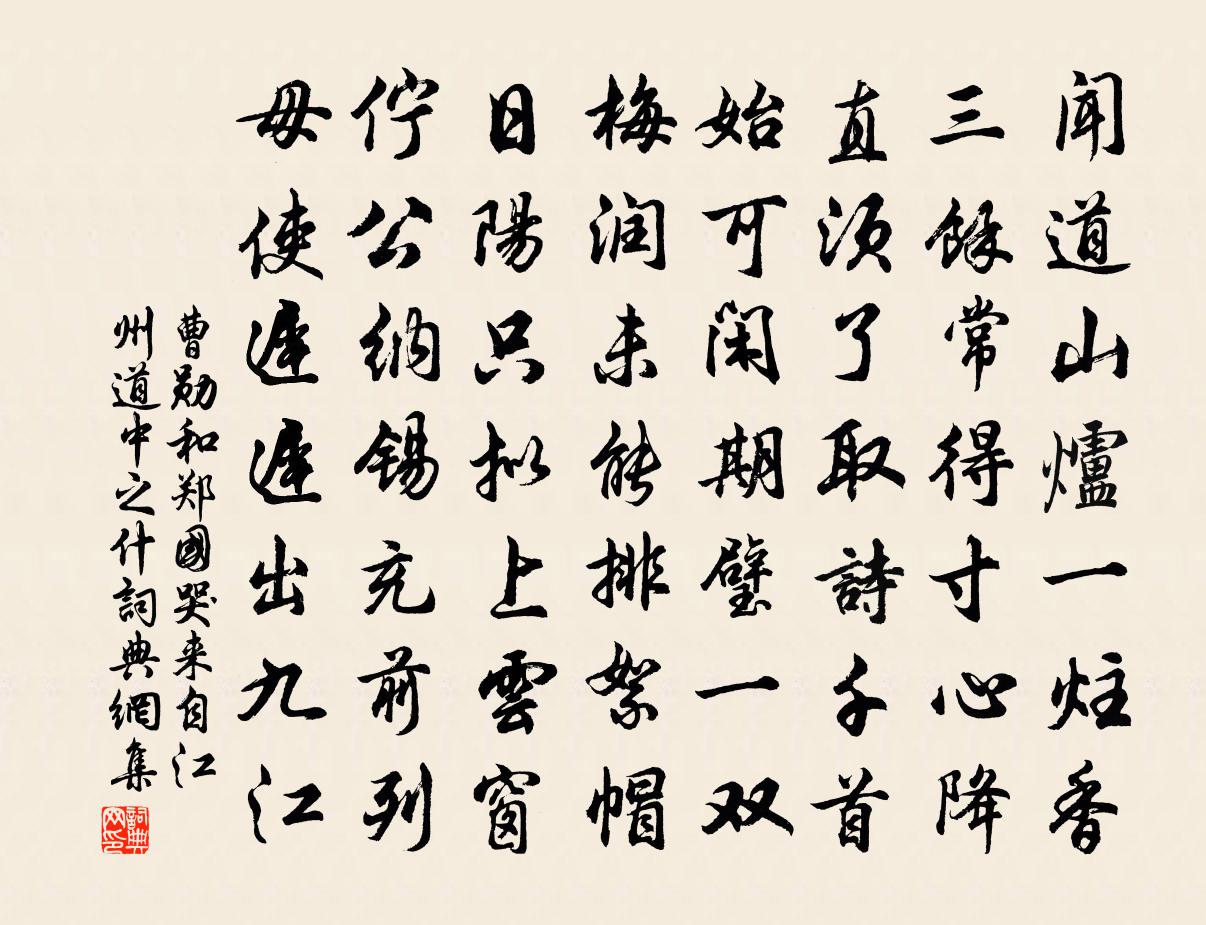 闻道山爐一炷香
三餘常得寸心降
直须了取詩千首
始可闲期璧一双
梅润未能排絮帽
日陽只拟上雲窗
佇公纳錫充前列
毋使遲遲出九江
曹勋和郑國哭来自江
州道中之什詞典網集
詞典网印